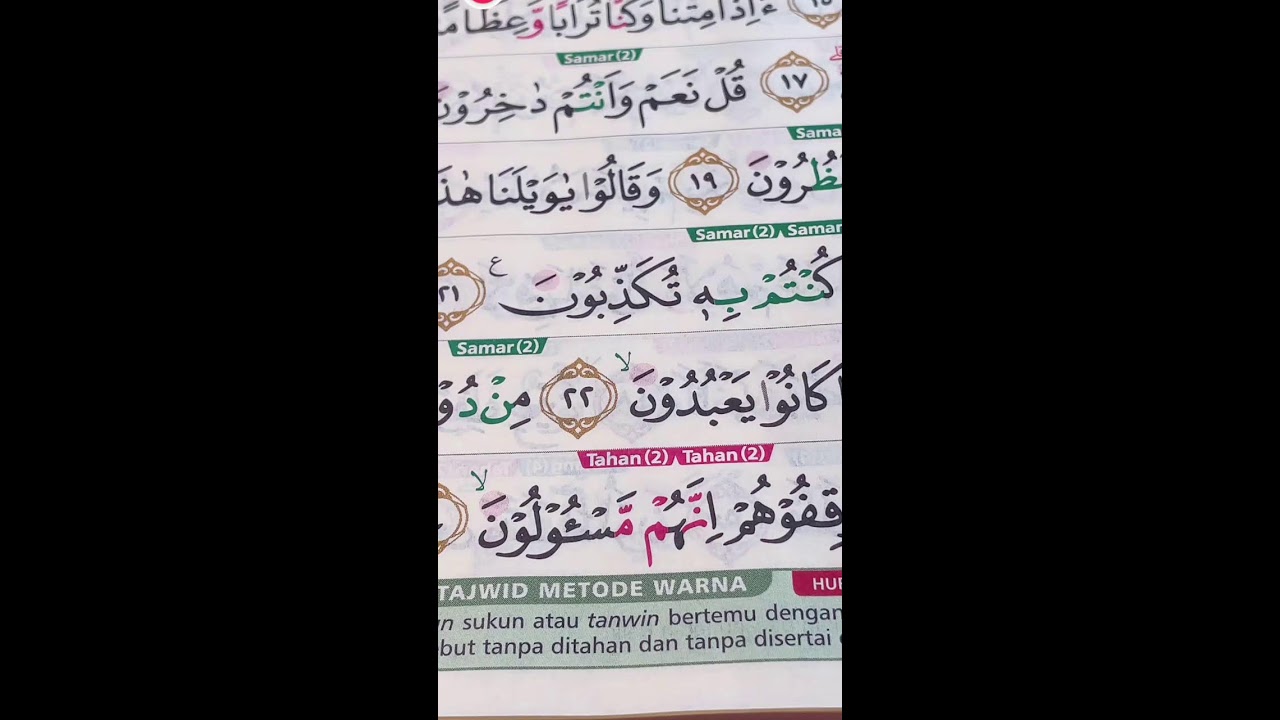 ءَاِذَا مِتْنَا وَكُنَّا تُرَابًا وَّعِظَامًا ١٥
Samar (2)
١٧ قُلْ نَعَمْ وَاَنْتُمْ دٰخِرُوْنَ
Sama
ظُرُوْنَ ١٩ وَقَالُوْا يٰوَيْلَنَا هٰذَ
Samar (2) Samar
كُنْتُمْ بِهٖ تُكَذِّبُوْنَ ع ٢١
Samar (2)
كَانُوْا يَعْبُدُوْنَ لا ٢٢ مِنْ دُوْ
Tahan (2) Tahan (2)
قِفُوْهُمْ اِنَّهُمْ مَّسْـُٔوْلُوْنَ لا
TAJWID METODE WARNA HU
n sukun atau tanwin bertemu dengan
but tanpa ditahan dan tanpa disertai